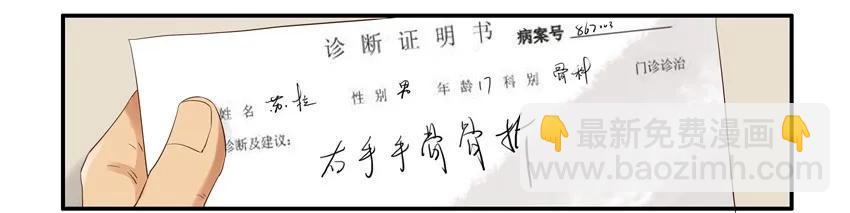 诊断证明书 病案号 867003
姓名 苏拉 性别 男 年龄 17 科别 骨科 门诊诊治
诊断及建议:
右手手骨骨折
最新免费漫画
www.baozimh.com